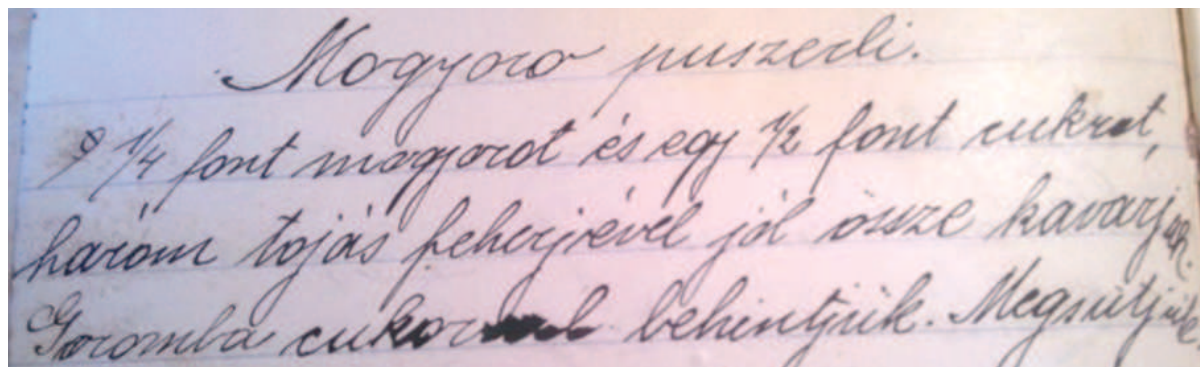 Mogyoro puszedli.
9 1/4 font mogyorot és egy 1/2 font cukrot,
három tojás feherjével jól össze kavarjuk.
Goromba cukorral behintjük. Megsütjük.